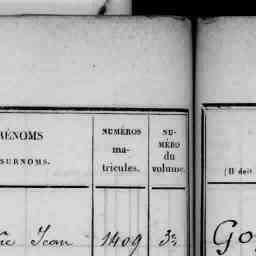 RÉNOMS
SURNOMS.
NUMÉROS
ma-
tricules.
NU-
MÉRO
du
volume.
(Il doit
Jean 1409 3
Go